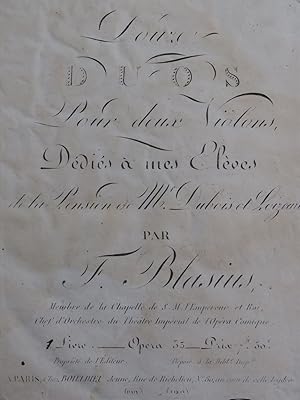 Douze
DUOS
Pour deux Violons,
Dédiés à mes Elèves
de la Pension de Mrs Dubois et Loizeau
PAR
F. Blasius,
Membre de la Chapelle de S. M. l'Empereur et Roi,
Chef d'Orchestre du Théâtre Impérial de l'Opéra Comique
1 Livre Opera 55 Prix
Propriété de l'Editeur. Déposé à la Bibl. Imp.
A PARIS, Chez BOIELDIEU Jeune, Rue de Richelieu, N° 80, au coin de celle